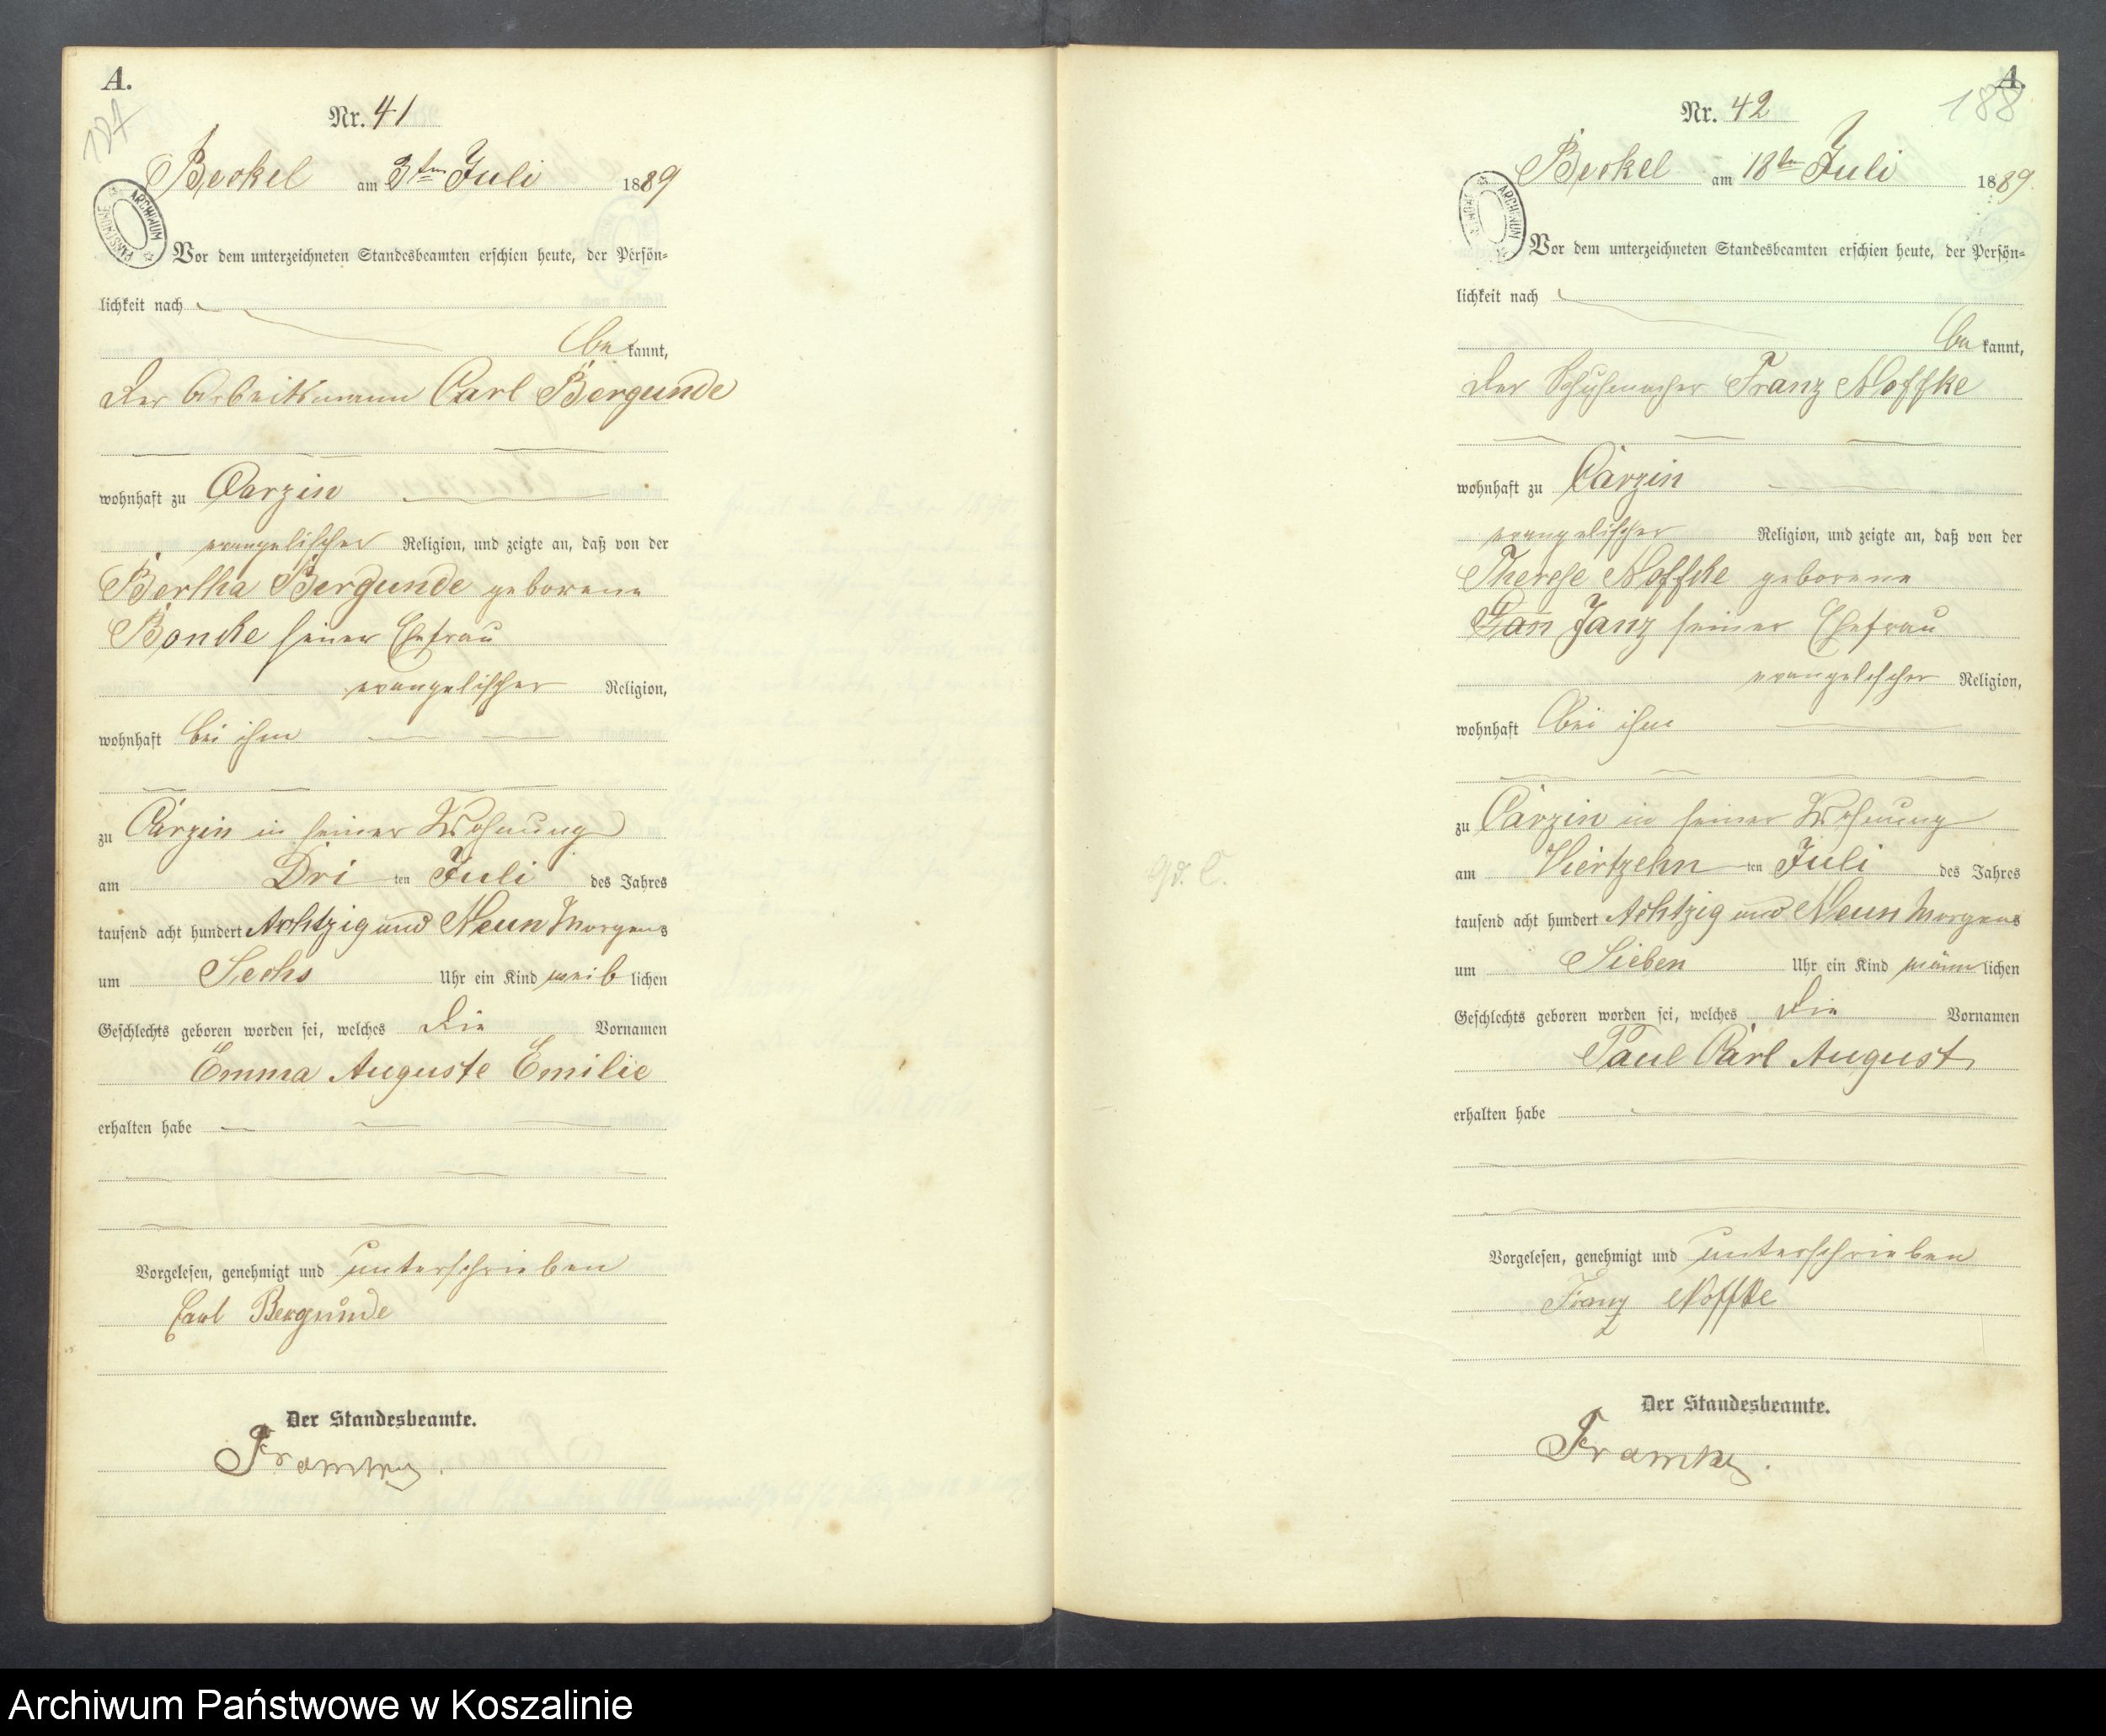 A.
187
Nr. 41
Beckel am 3ten Juli 1889
ARCHIWUM PAŃSTWOWE
Vor dem unterzeichneten Standesbeamten erschien heute, der Persön-
lichkeit nach
be kannt,
der Arbeitsmann Carl Bergunde
wohnhaft zu Carzin
evangelischer Religion, und zeigte an, daß von der
Bertha Bergunde geborene
Boncke seiner Ehefrau
evangelischer Religion,
wohnhaft bei ihm
zu Carzin in seiner Wohnung
am Dri ten Juli des Jahres
tausend acht hundert Achtzig und Neun Morgens
um Sechs Uhr ein Kind weib lichen
Geschlechts geboren worden sei, welches die Vornamen
Emma Auguste Emilie
erhalten habe
Vorgelesen, genehmigt und unterschrieben
Carl Bergunde
Der Standesbeamte.
A.
188
Nr. 42
Beckel am 18ten Juli 1889.
ARCHIWUM
Vor dem unterzeichneten Standesbeamten erschien heute, der Persön-
lichkeit nach
be kannt,
der Schuhmacher Franz Noffke
wohnhaft zu Carzin
evangelischer Religion, und zeigte an, daß von der
Therese Noffke geborene
Janz seiner Ehefrau
evangelischer Religion,
wohnhaft bei ihm
zu Carzin in seiner Wohnung
am Viertzehn ten Juli des Jahres
tausend acht hundert Achtzig und Neun Morgens
um Sieben Uhr ein Kind männ lichen
Geschlechts geboren worden sei, welches die Vornamen
Paul Carl August
erhalten habe
Vorgelesen, genehmigt und unterschrieben
Franz Noffke
Der Standesbeamte.
Archiwum Państwowe w Koszalinie